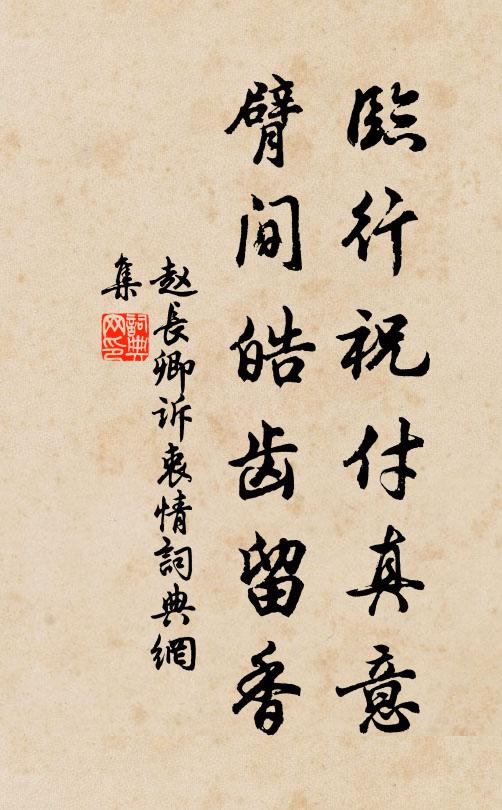 臨行祝付真意
臂间皓齿留香
赵長卿诉衷情詞典網
集
詞典網印